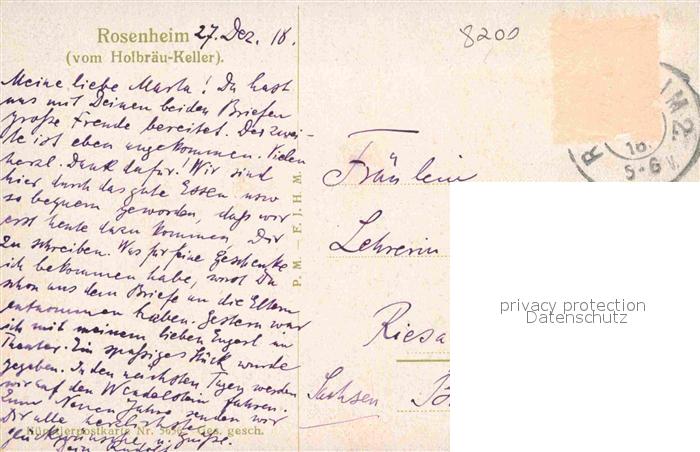 Rosenheim 27. Dez. 18.
(vom Hofbräu-Keller).
8200
Meine liebe Marta! Du hast
uns mit Deinen beiden Briefen
große Freude bereitet. Der zwei-
te ist eben angekommen. Vielen
herzl. Dank dafür! Wir sind
hier durch das gute Essen usw
so bequem geworden, daß wir
erst heute dazu kommen, Dir
zu schreiben. Was für feine Geschenke
ich bekommen habe, wirst Du
schon aus dem Briefe an die Eltern
entnommen haben. Gestern war
ich mit meinem lieben Engerl im
Theater. Ein spaßiges Stück wurde
gegeben. In den nächsten Tagen werden
wir auf den Wendelstein fahren.
Zum Neuen Jahre senden wir
Dir alle herzlichsten
Glückwünsche u. Grüße.
Dein Rudolf
Künstlerpostkarte Nr. 5656 - Ges. gesch.
P. M. — F. J. H. M.
Fräulein
Lehrerin
Riesa
Sachsen
R IM 2
18.
5-6 V.
privacy protection
Datenschutz